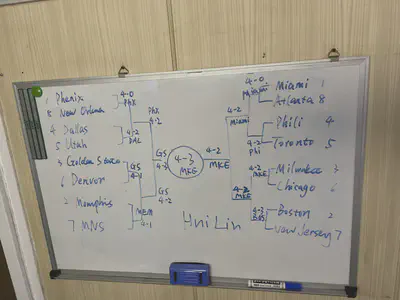 1 Phenix
8 New Orleans
4 Dallas
5 Utah
3 Golden State
6 Denver
2 Memphis
7 MNS
4-0
PHX
4-2
DAL
GS
4-1
MEM
4-1
PHX
4-2
GS
4-2
4-3
MKE
4-2
MKE
4-2
Miami
4-2
MKE
4-0
Miami
4-2
Phi
4-2
MKE
4-3
BOS
Miami 1
Atlanta 8
Phili 4
Toronto 5
Milwukee 3
Chicago 6
Boston 2
New Jersey 7
HuiLin